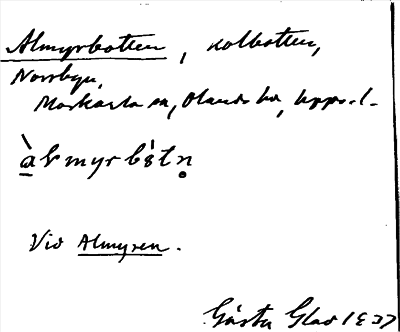 Almyrbotten, kolbotten,
Norrbyn,
Morkarla sn, Olands hd, Uppsl.
àlmyrbòtn̥
Vid Almyren.
Gösta Glad 1937